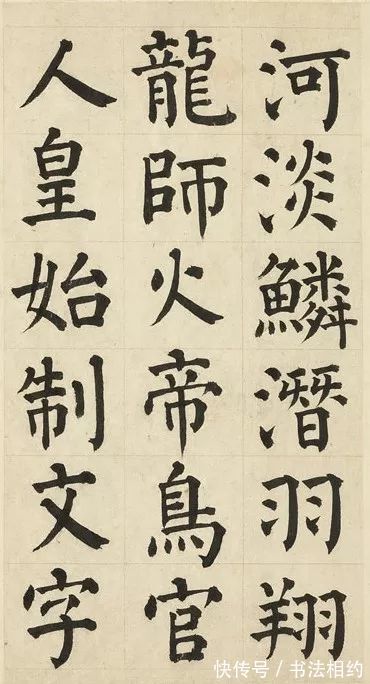 河淡鱗潛羽翔
龍師火帝鳥官
人皇始制文字
快传号／书法相约